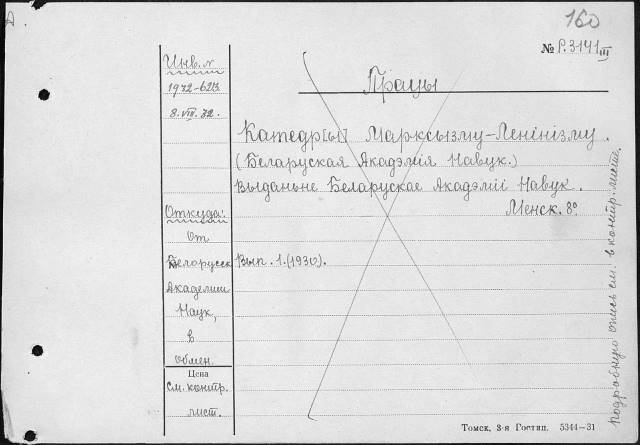 A
160
№ P.3141 III
Инв. №
1972-62В.
8.VIII.32.
Працы
Катедр[ы] Марксызму-Ленінізму.
(Беларуская Акадэмія Навук.)
Выданьне Беларускае Акадэміі Навук.
Менск. 8º
Откуда:
От
Белорусск
Академии
Наук,
в
обмен.
Вып. 1.(1930).
Цена
См. контр.
лист.
Подробную опись см. в контр. листе.
Томск, 3-я Гостип. 5344-31